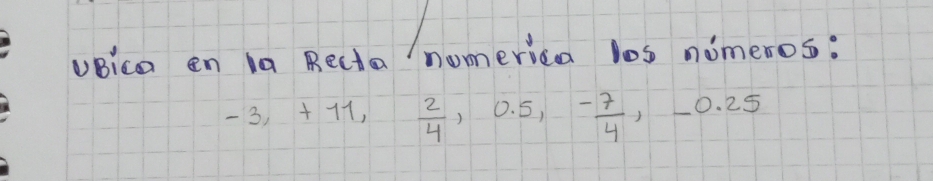 UBica en la Recta numerica los números:
-3, + 11, 2/4, 0.5, -7/4, -0.25